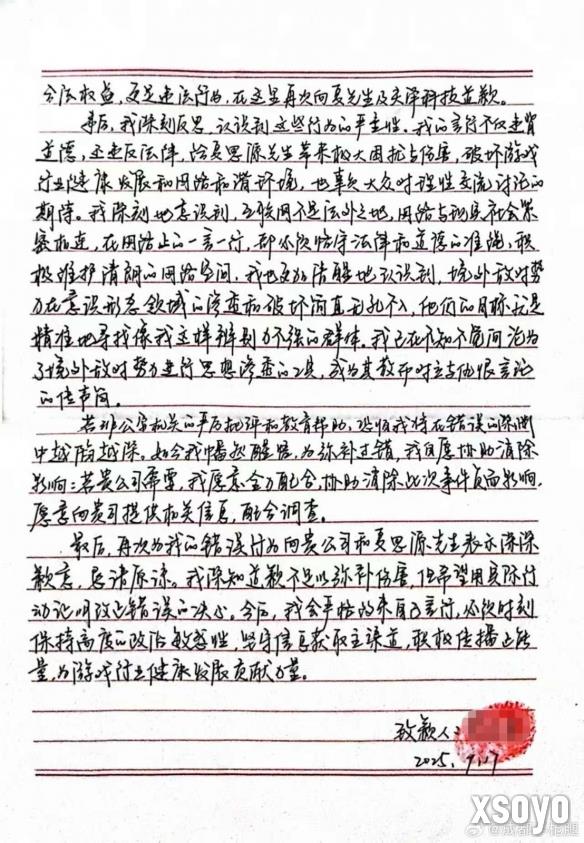 合法权益,更是违法行为,在这里再次向夏先生及灵泽科技道歉。
事后,我深刻反思,认识到这些行为的严重性。我的言行不仅违背
道德,还违反法律,给夏思源先生带来极大困扰与伤害,破坏游戏
行业健康发展和网络和谐环境,也辜负大众对理性交流讨论的
期待。我深刻地意识到,互联网不是法外之地,网络与现实社会紧
密相连,在网络上的一言一行,都必须恪守法律和道德的准绳,积
极维护清朗的网络空间。我也更加清醒地认识到,境外敌对势
力在意识形态领域的渗透和破坏简直无孔不入,他们的目标就是
精准地寻找像我这样辨别力不强的群体。我已在不知不觉间沦为
了境外敌对势力进行思想渗透的工具,成为其散布对立与仇恨言论
的传声筒。
若非公安机关的严厉批评和教育帮助,恐怕我将在错误的深渊
中越陷越深。如今我幡然醒悟,为弥补过错,我自愿协助消除
影响:若贵公司需要,我愿意全力配合,协助消除此次事件负面影响,
愿意向贵司提供相关信息,配合调查。
最后,再次为我的错误行为向贵公司和夏思源先生表示深深
歉意,恳请原谅。我深知道歉不足以弥补伤害,但希望用实际行
动证明改正错误的决心。今后,我会严格约束自己言行,必须时刻
保持高度的政治敏感性,坚守信息获取主渠道,积极传播正能
量,为游戏行业健康发展贡献力量。
致歉人:
2025.9.17
XSOYO